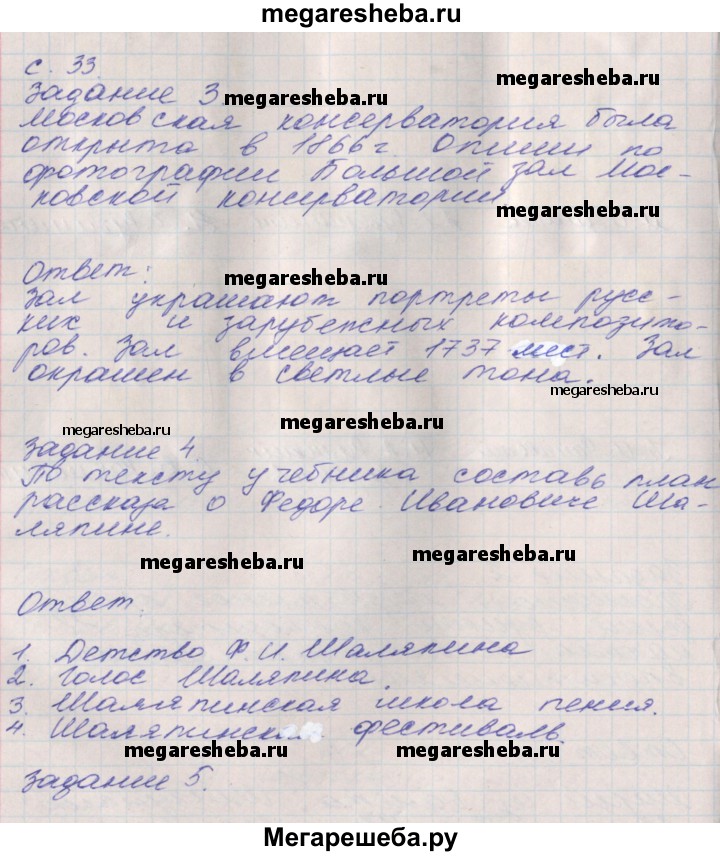 megaresheba.ru
с. 33
Задание 3.
megaresheba.ru
Московская консерватория была
открыта в 1866 г. Опиши по
фотографии Большой зал Мос-
ковской консерватории.
megaresheba.ru
Ответ:
megaresheba.ru
Зал украшают портреты русс-
ких и зарубежных композито-
ров. Зал вмещает 1737 мест. Зал
окрашен в светлые тона.
megaresheba.ru
megaresheba.ru
Задание 4.
По тексту учебника составь план
рассказа о Федоре Ивановиче Ша-
ляпине.
megaresheba.ru
megaresheba.ru
Ответ:
1. Детство Ф. И. Шаляпина
2. Голос Шаляпина.
3. Шаляпинская школа пения.
4. Шаляпинский фестиваль.
megaresheba.ru
megaresheba.ru
Задание 5.
Мегарешеба.ру